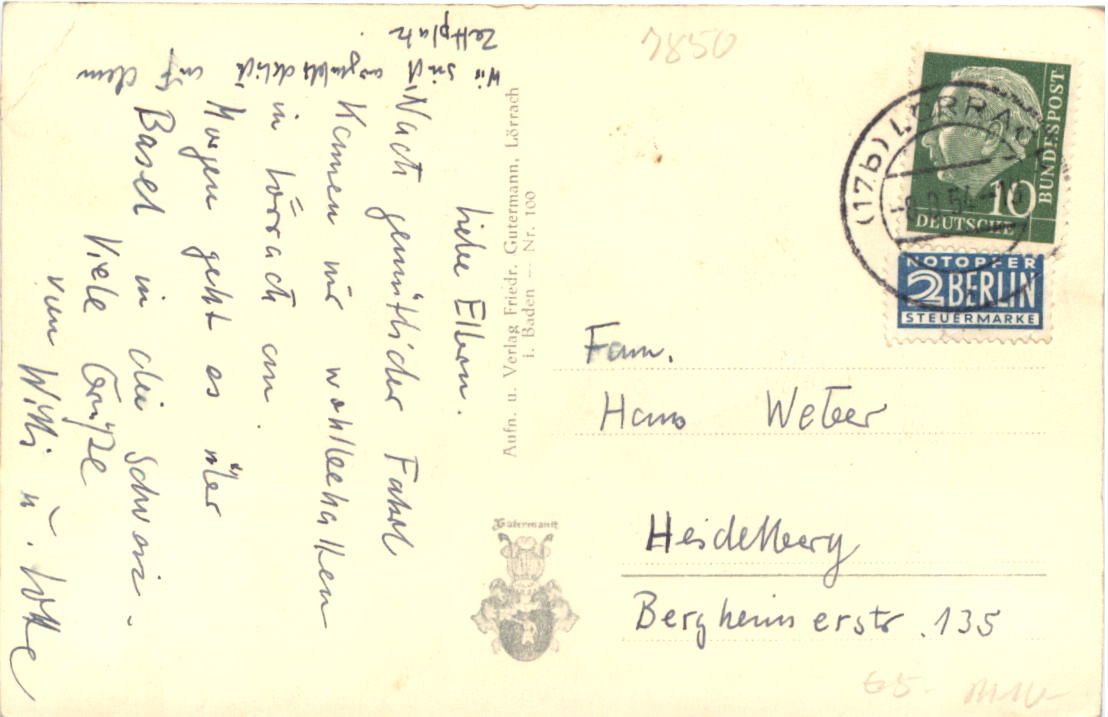 Liebe Eltern.
Nach gemütlicher Fahrt
kamen wir wohlbehalten
in Lörrach an.
Morgen geht es über
Basel in die Schweiz.
Viele Grüße
von Willi u. Lotte
Wir sind augenblicklich auf dem
Zeltplatz
Aufn. u. Verlag Friedr. Gutermann, Lörrach
i. Baden — Nr. 100
Gütermann
7850
(17b) LÖRRACH
10
DEUTSCHE
BUNDESPOST
NOTOPFER
2 BERLIN
STEUERMARKE
Fam.
Hans Weber
Heidelberg
Bergheimerstr. 135
65-